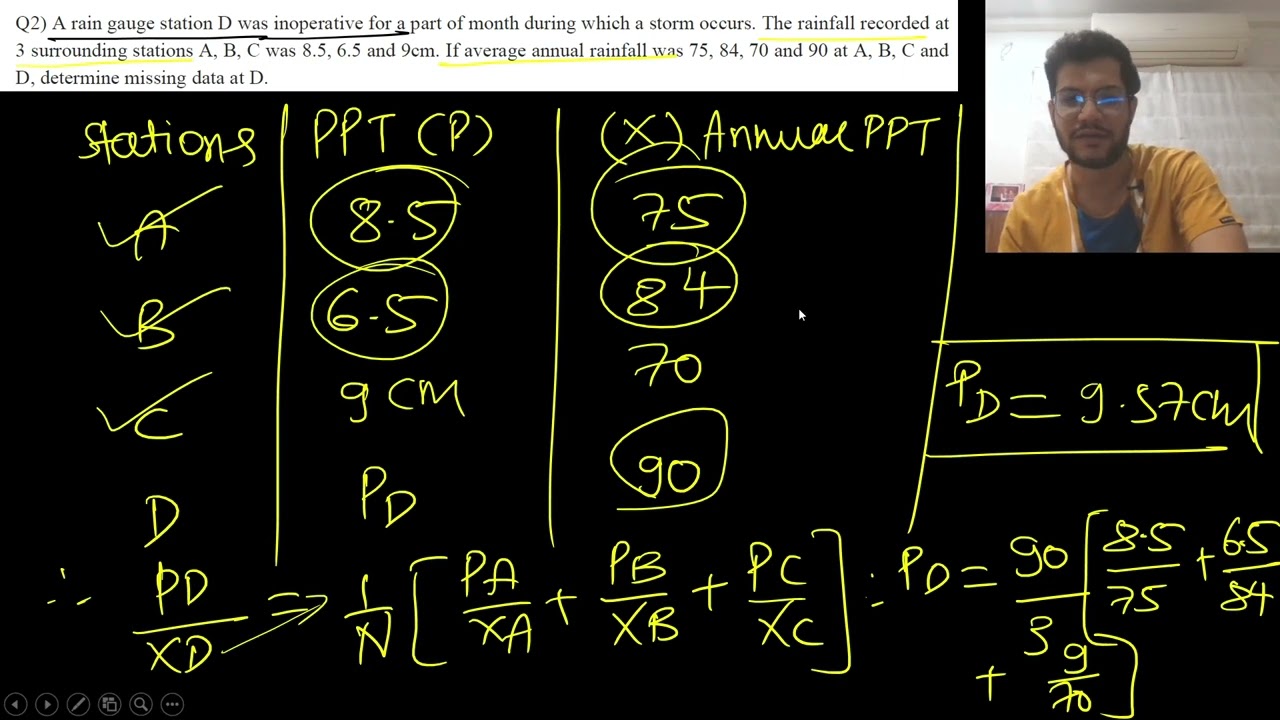 Q2) A rain gauge station D was inoperative for a part of month during which a storm occurs. The rainfall recorded at
3 surrounding stations A, B, C was 8.5, 6.5 and 9cm. If average annual rainfall was 75, 84, 70 and 90 at A, B, C and
D, determine missing data at D.
Stations PPT (P) (X) Annual PPT
A 8.5 75
B 6.5 84
C 9 cm 70
D PD 90
PD = 9.57cm
∴ PD/XD = 1/N [PA/XA + PB/XB + PC/XC]
∴ PD = 90/3 [8.5/75 + 6.5/84
+ 9/70]